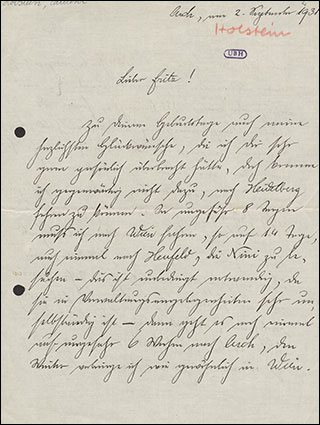 Aich, am 2. September 1931
Holstein
UBH
Lieber Fritz!
Zu Deinem Geburtstage auch meine
herzlichsten Glückwünsche, die ich Dir sehr
gern persönlich überbracht hätte, doch komme
ich gegenwärtig nicht dazu, nach Heidelberg
fahren zu können. In ungefähr 8 Tagen
muss ich nach Wien fahren, so auf 14 Tage,
auch einmal nach Heufeld, die Nini zu be-
suchen – dies ist unbedingt notwendig, da
sie in Verwaltungsangelegenheiten sehr un-
selbständig ist – dann geht es noch einmal
auf ungefähr 6 Wochen nach Aich, den
Winter verbringe ich wie gewöhnlich in Wien.